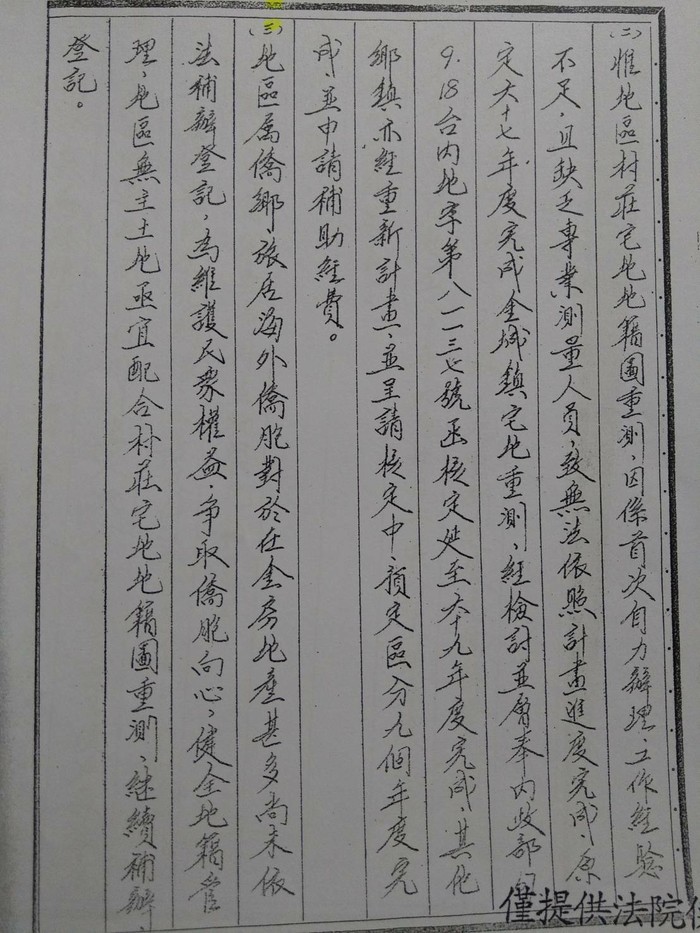 (二)惟地區村莊宅地地籍圖重測，因係首次自力辦理，工作經驗
不足，且缺乏專業測量人員，致無法依照計畫進度完成，原
定六十七年度完成金城鎮宅地重測，經檢討並層奉內政部
9.18台內地字第八一一三七號函核定延至六十九年度完成，其他
鄉鎮亦經重新計畫，並呈請核定中，預定區分九個年度完
成並申請補助經費。
(三)地區屬僑鄉，旅居海外僑胞對於在金房地產甚多尚未依
法補辦登記，為維護民眾權益，爭取僑胞向心，健全地籍管
理，地區無主土地亟宜配合村莊宅地地籍圖重測，繼續補辦
登記。
僅提供法院